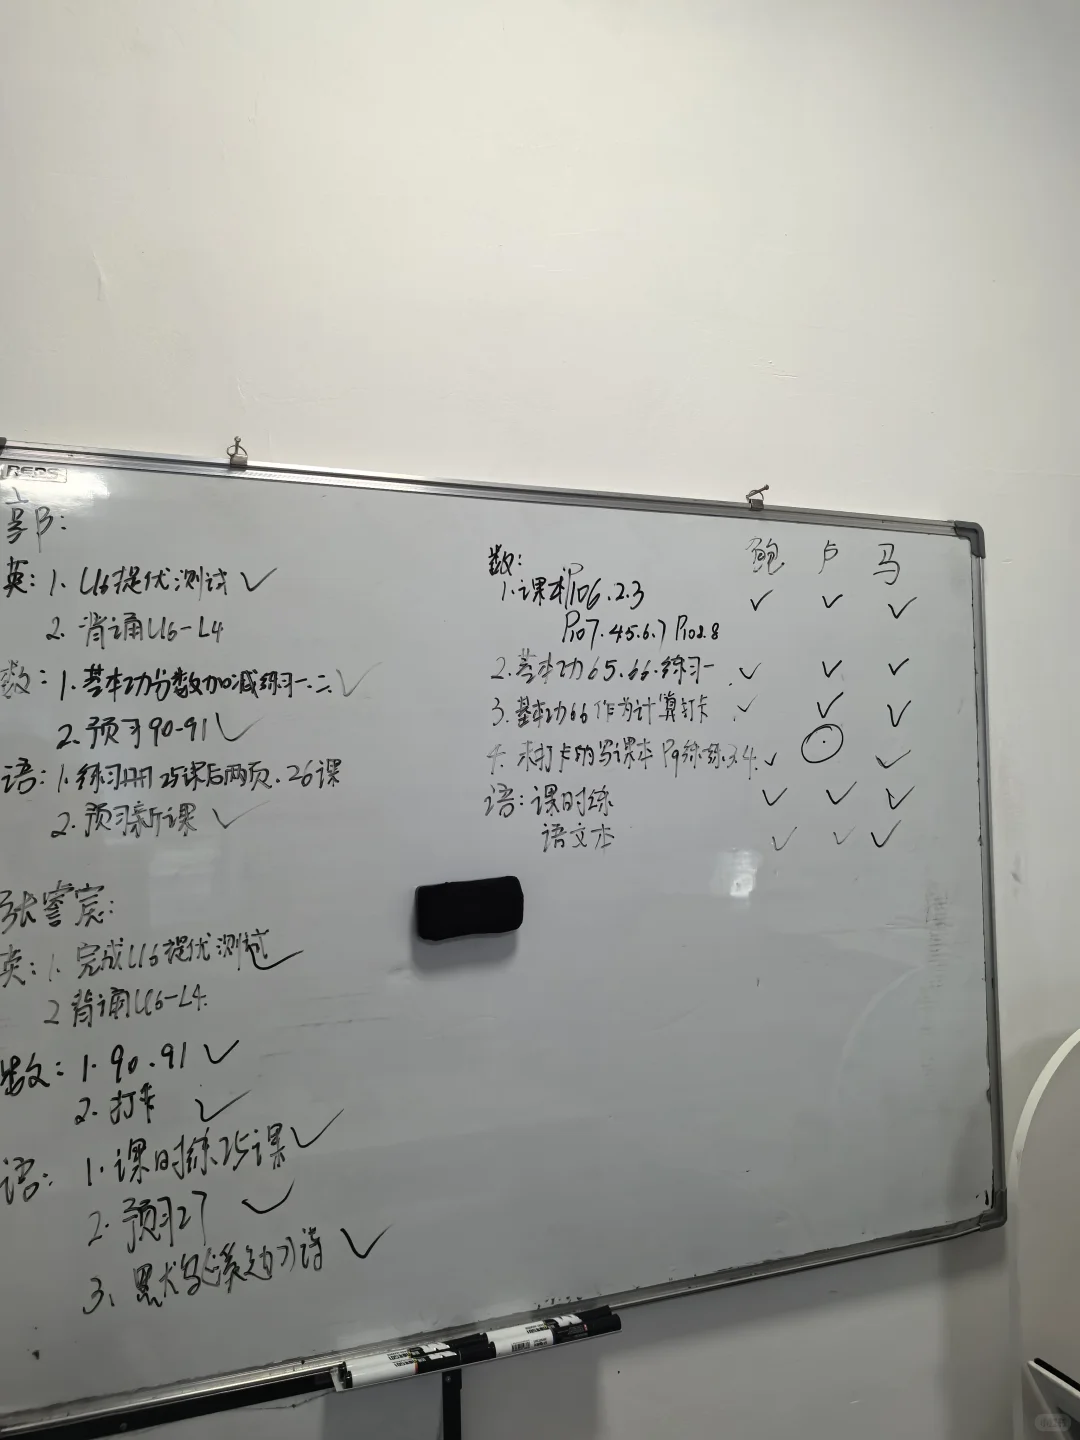 REDS
郭:
英: 1. U6提优测试 ✓
2. 背诵U6-L4
数: 1. 基本功分数加减练习一.二 ✓
2. 预习90-91 ✓
语: 1. 练习册25课后两页.26课
2. 预习新课 ✓
张睿宸:
英: 1. 完成U6提优测试 ✓
2 背诵U6-L4.
数: 1. 90.91 ✓
2. 打卡 ✓
语: 1. 课时练25课 ✓
2. 预习27 ✓
3. 默写《溪边》诗 ✓
鲍 卢 马
数:
1. 课本P106.2.3 ✓ ✓ ✓
P107.4.5.6.7 P108.8
2. 基本功65.66.练习一 ✓ ✓ ✓
3. 基本功66作为计算打卡 ✓ ✓ ✓
4. 未打卡的写课本P9练一练3.4. ✓ ✓
语: 课时练 ✓ ✓ ✓
语文本 ✓ ✓ ✓